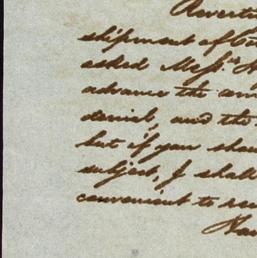 Reverti
shipment of Co
asked Messrs. H
advance the am
denial, and the
but if you shou
subject, I shall
convenient to
Hav